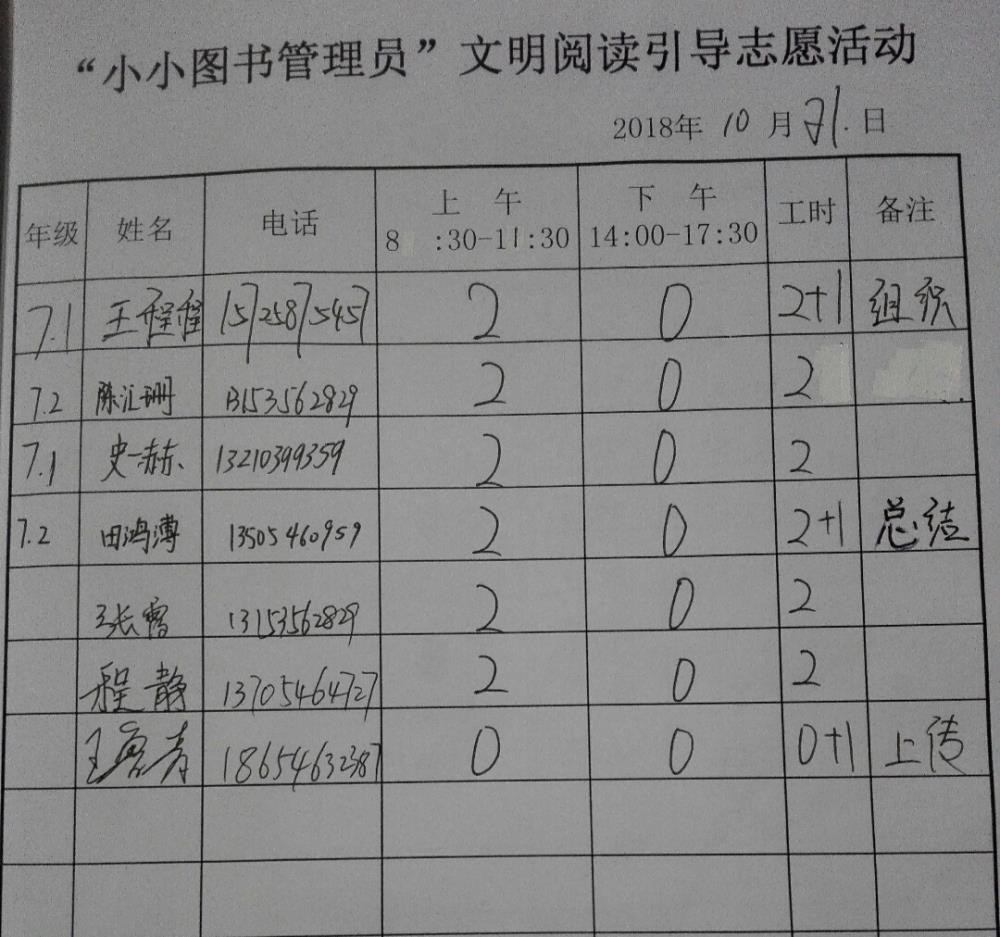 “小小图书管理员”文明阅读引导志愿活动
2018年 10 月 21. 日
年级 姓名 电话 上 午 8 :30-11:30 下 午 14:00-17:30 工时 备注
7.1 王程程 15725875457 2 0 2+1 组织
7.2 陈汇珊 13153562829 2 0 2
7.1 史一赫 13210399359 2 0 2
7.2 田鸿溥 13505460959 2 0 2+1 总结
张雪 13153562829 2 0 2
程静 13705464727 2 0 2
王 青 18654632387 0 0 0+1 上传